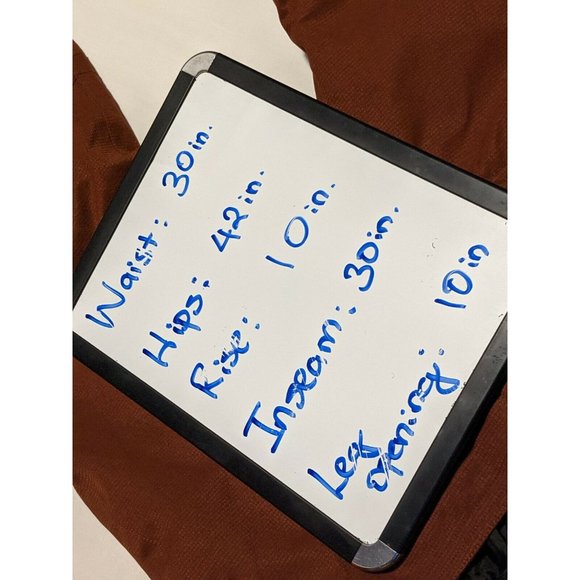 Waist: 30in.
Hips: 42in.
Rise: 10in.
Inseam: 30in.
Leg
opening: 10in